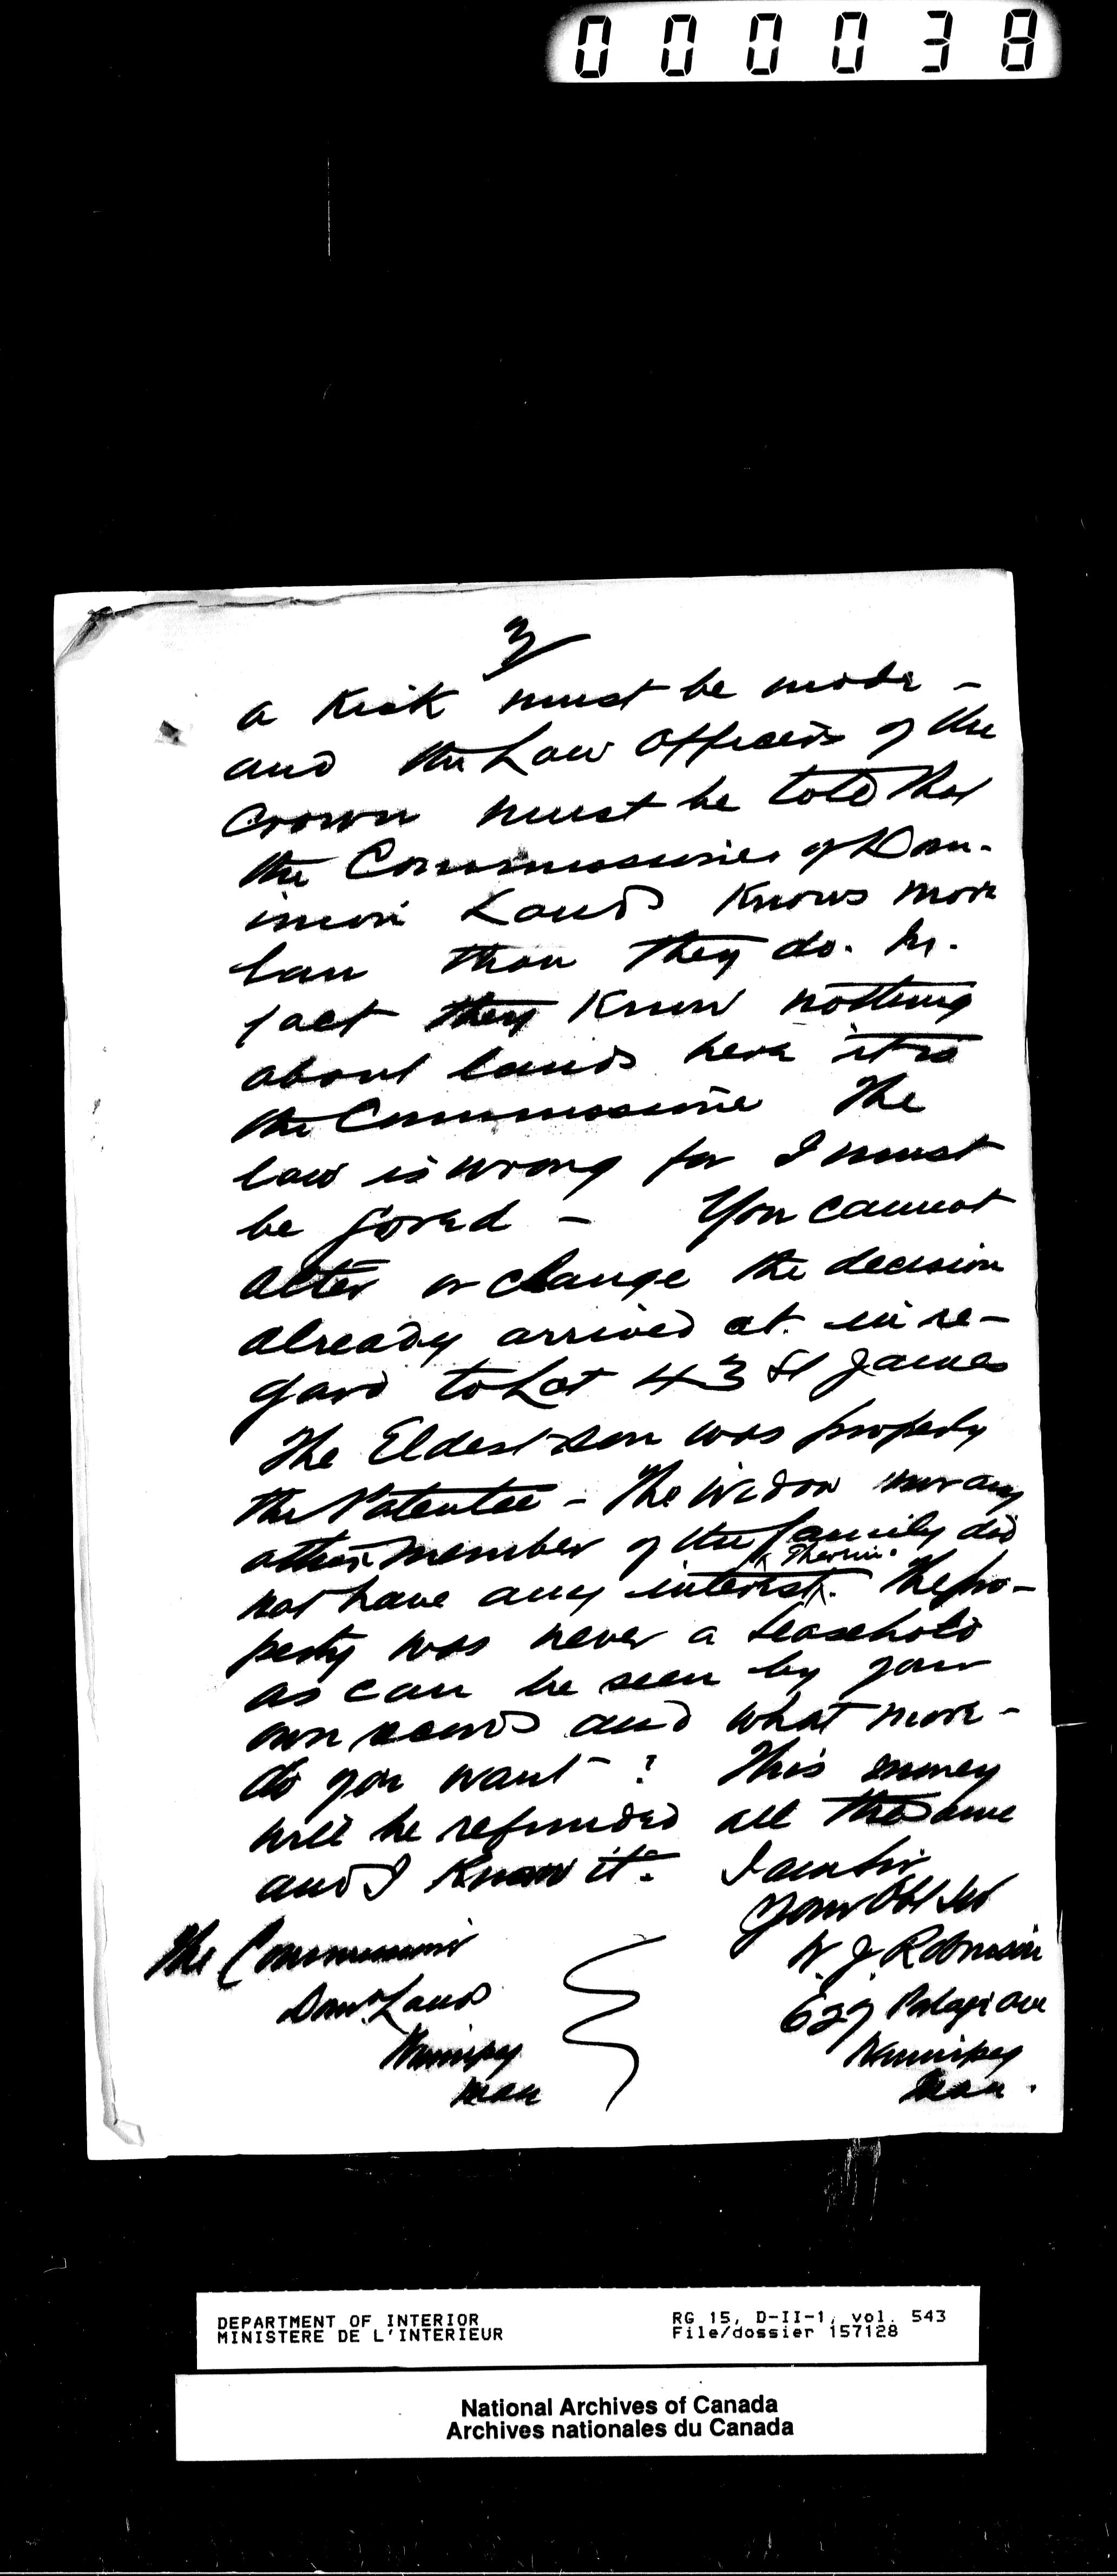 000038
3
a Kick must be made -
and the Law Officers of the
Crown must be told that
the Commissioner of Dom-
inion Lands Knows more
law than they do. In
fact they Know nothing
about lands here it is
the Commissioner The
law is wrong for I must
be gored - You cannot
alter or change the decision
already arrived at in re-
gard to Lot 43 St James
The Eldest son was properly
the Patentee - The widow nor any
other member of the family did
not have any interest therein. The pro-
perty was never a leasehold
as can be seen by your
own records and what more -
do you want ? This money
will be refunded all the same
and I Know it. I am Sir
Your Obt Svt
The Commissioner
W. J. Robinson
Domn Lands
629 Portage Ave
Winnipeg
Winnipeg
Man
Man.
DEPARTMENT OF INTERIOR
MINISTERE DE L'INTERIEUR
RG 15, D-II-1, vol. 543
File/dossier 157128
National Archives of Canada
Archives nationales du Canada